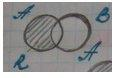 A B
R A